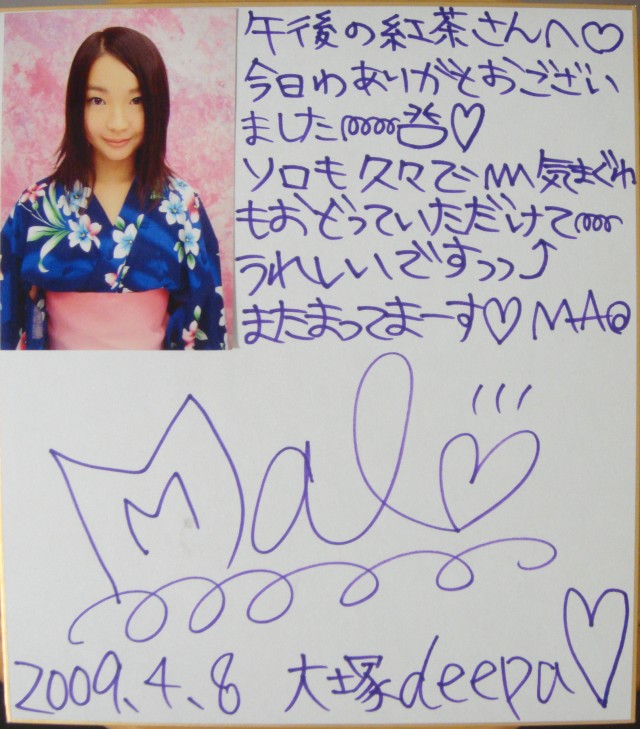 午後の紅茶さんへ♡
今日わありがとおござい
ました♡
ソロも久々で 気まぐれ
もおどっていただけて
うれしいですっっ⤴
またまってまーす♡MAO
Mao♡
2009.4.8 大塚deepa♡